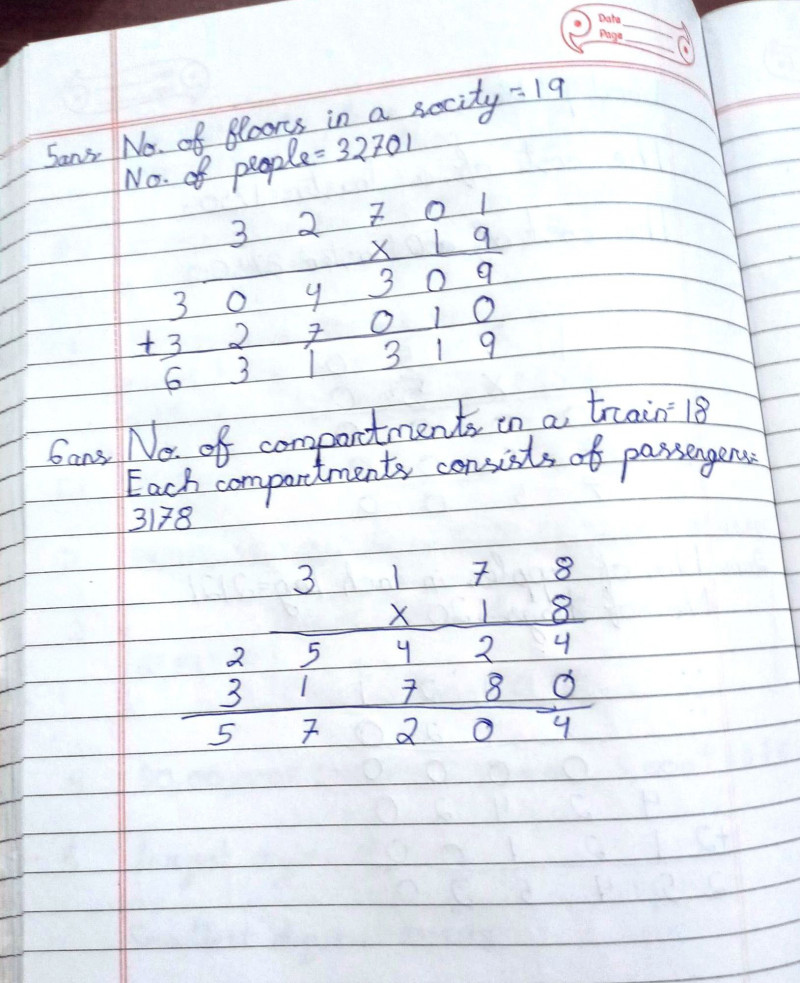 Date
Page
5ans No. of floors in a socity = 19
No. of people = 32701
3 2 7 0 1
x 1 9
3 0 4 3 0 9
+ 3 2 7 0 1 0
6 3 1 3 1 9
6ans No. of compartments in a train = 18
Each compartments consists of passengers =
3178
3 1 7 8
x 1 8
2 5 4 2 4
3 1 7 8 0
5 7 2 0 4